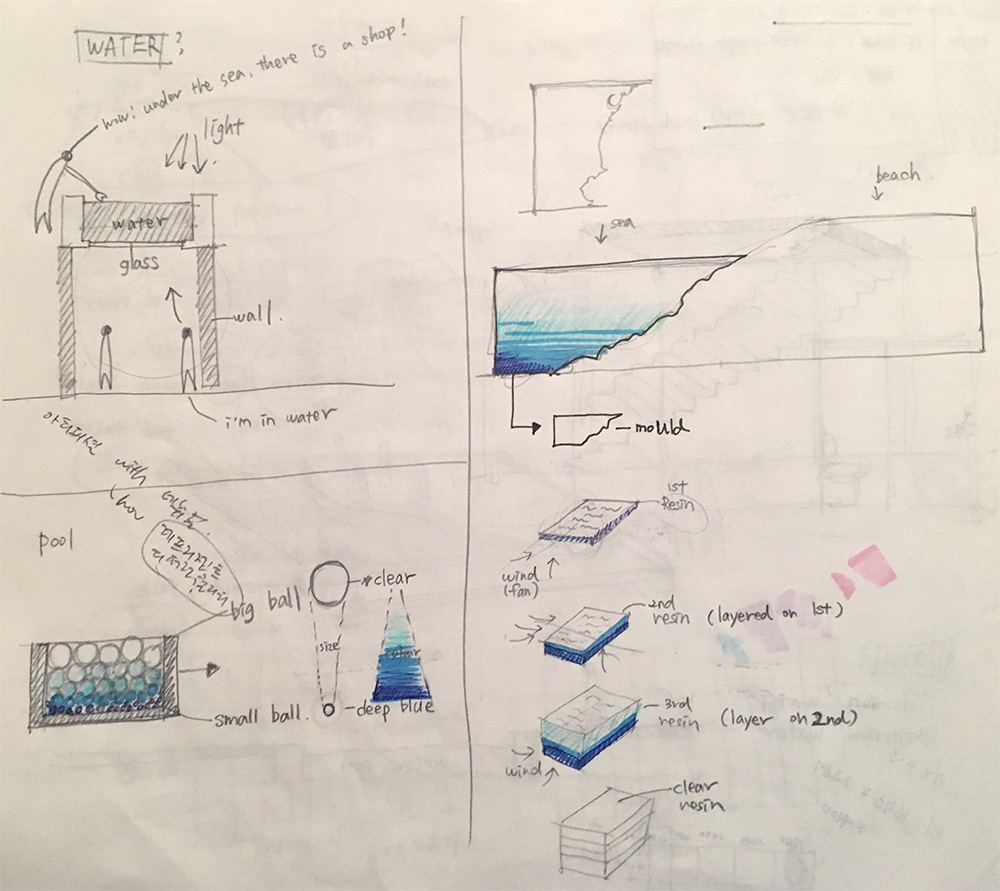 WATER?
wow! under the sea, there is a shop!
light
water
glass
wall.
i'm in water
with
pool
big ball
clear
size
colour
small ball.
deep blue
sea
beach
mould
1st
Resin
wind
(fan)
2nd
resin (layered on 1st)
3rd
resin (layer on 2nd)
wind
clear
resin